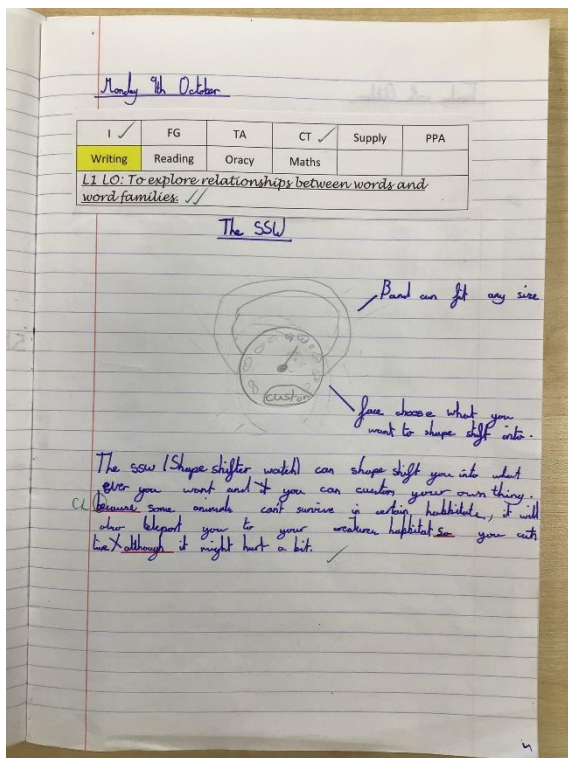 Monday 9th October
I ✓ FG TA CT ✓ Supply PPA
Writing Reading Oracy Maths
L1 LO: To explore relationships between words and
word families. ✓✓
The SSW
Band can fit any size
custom
face choose what you
want to shape shift into.
The SSW (Shape shifter watch) can shape shift you into what
ever you want and you can custom your own thing.
CL Because some animals can't survive in certain habbitats, it will
also teleport you to your creatures habbitat so you
although it might hurt a bit.